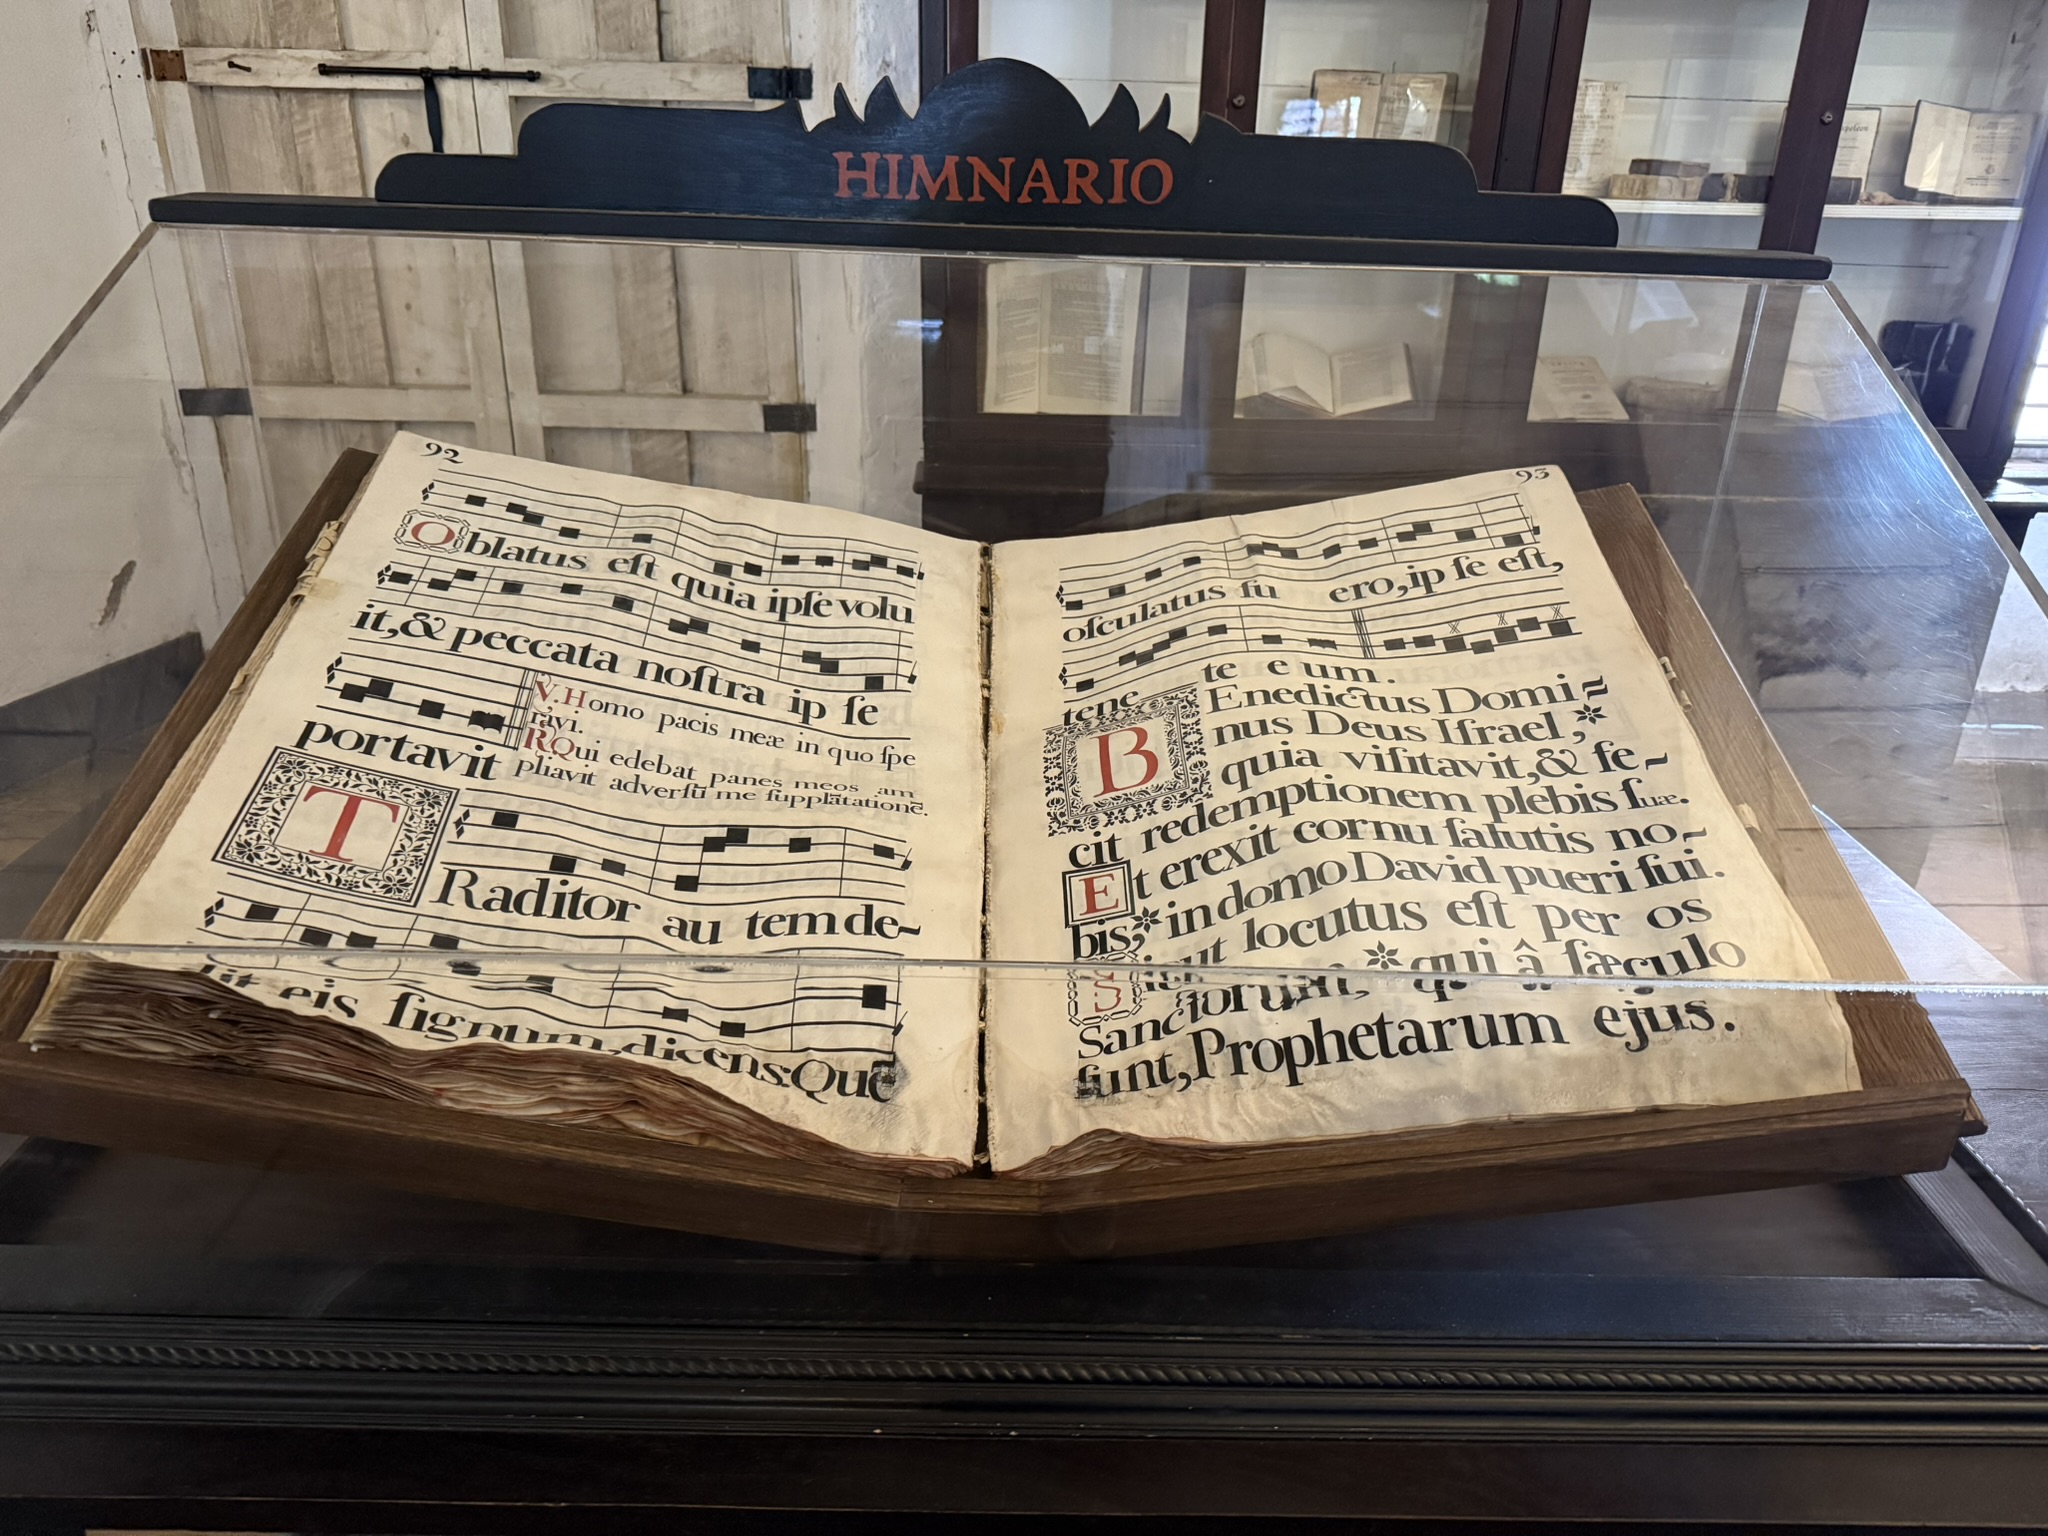 HIMNARIO
92
Oblatus eſt quia ipſe volu
it, & peccata noſtra ip ſe
portavit
V. Homo pacis meæ in quo ſpe
ravi.
R Qui edebat panes meos am
pliavit adverſū me ſupplātationē.
TRaditor au tem de~
dit eis ſignum, dicens: Quē
93
oſculatus fu ero, ip ſe eſt,
tene te e um.
BEnedictus Domi~
nus Deus Iſrael, *
quia viſitavit, & fe~
cit redemptionem plebis ſuæ.
Et erexit cornu ſalutis no~
bis, * in domo David pueri ſui.
Sicut locutus eſt per os
Sanctorum, * qui â ſæculo
ſunt, Prophetarum ejus.